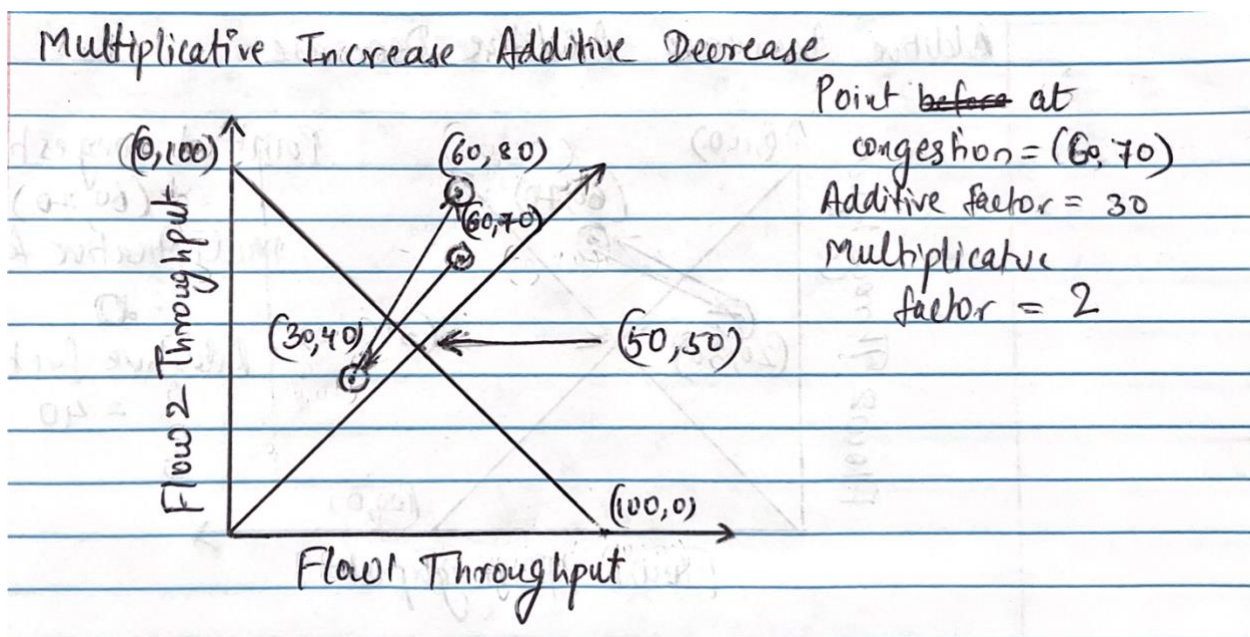 Multiplicative Increase Additive Decrease
Point before at
congestion = (60, 70)
Additive factor = 30
Multiplicatve
factor = 2
(0,100)
(60,80)
(60,70)
(30,40)
(50,50)
(100,0)
Flow 2 Throughput
Flow1 Throughput